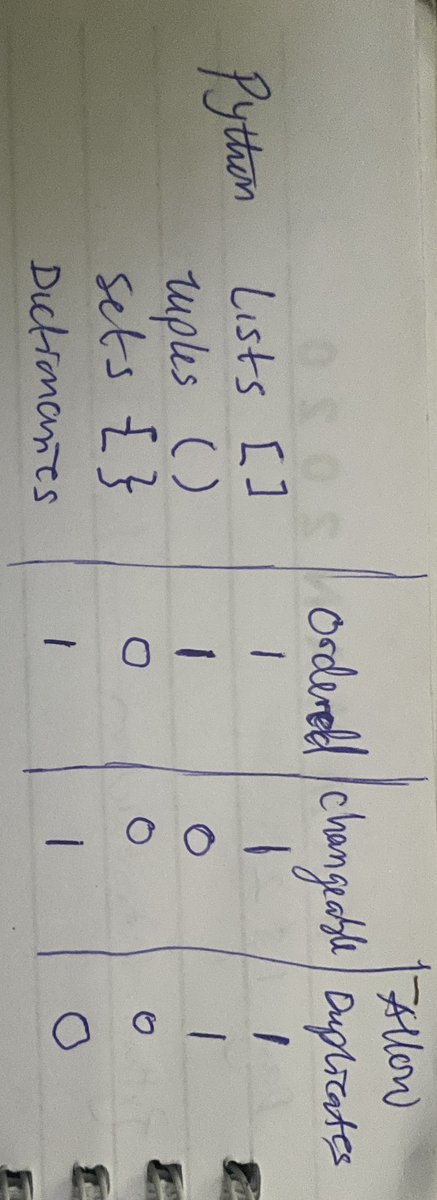 Allow
Ordered changeable Duplicates
Python Lists [] 1 1 1
Tuples () 1 0 1
Sets {} 0 0 0
Dictionaries 1 1 0